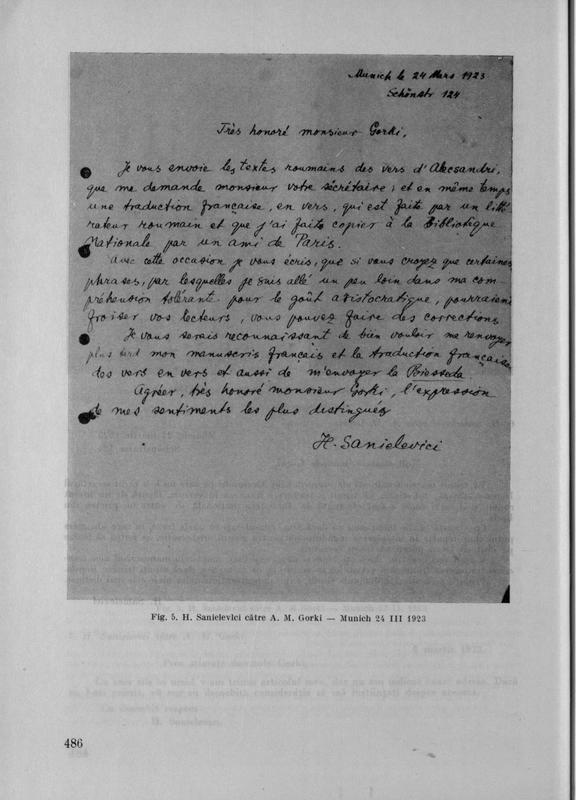 Munich le 24 Mars 1923
Schönstr 124
Très honoré monsieur Gorki,
Je vous envoie les textes roumains des vers d'Alecsandri,
que me demande monsieur votre sécrétaire; et en même temps
une traduction française, en vers, qui est faite par un litté
rateur roumain et que j'ai faite copier à la Bibliotique
Nationale par un ami de Paris.
Avec cette occasion je vous écris, que si vous croyez que certaines
phrases, par lesquelles je suis allé un peu loin dans ma com
préhension tolérante pour le goût aristocratique, pourraient
froiser vos lecteurs, vous pouvez faire des corrections
Je vous serais reconnaissant de bien vouloir me renvoyer
plus tard mon manuscris français et la traduction française
des vers en vers et aussi de m'envoyer la Biesseda
Agréer, très honoré monsieur Gorki, l'expression
de mes sentiments les plus distingués
H. Sanielevici
Fig. 5. H. Sanielevici către A. M. Gorki — Munich 24 III 1923
486